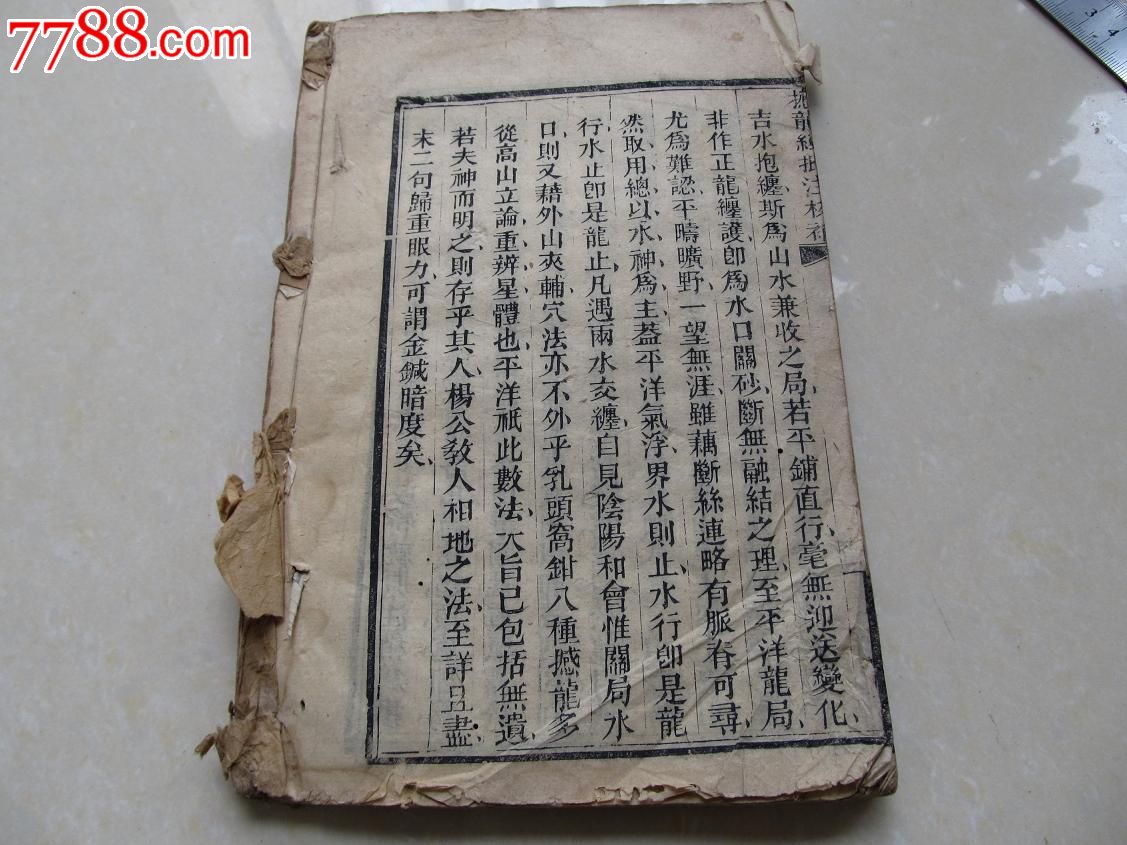 7788.com
3 4
撼龍經批注校補
吉水抱纏斯爲山水兼收之局若平鋪直行毫無迎送變化
非作正龍纏護卽爲水口關砂斷無融結之理至平洋龍局
尤爲難認平疇曠野一望無涯雖藕斷絲連略有脈脊可尋
然取用總以水神爲主蓋平洋氣浮界水則止水行卽是龍
行水止卽是龍止凡遇兩水交纏自見陰陽和會惟關局水
口則又藉外山夾輔穴法亦不外乎乳頭窩鉗八種撼龍多
從高山立論重辨星體也平洋祇此數法大旨已包括無遺
若夫神而明之則存乎其人楊公敎人相地之法至詳且盡
末二句歸重眼力可謂金鍼暗度矣